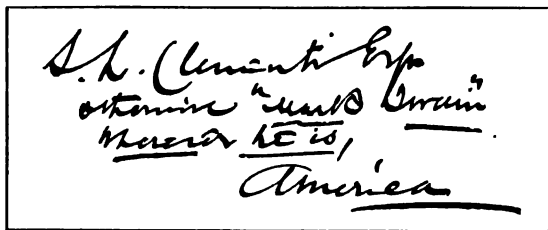 S. L. Clements Esqr
otherwise "Mark Twain"
Wherever he is,
America